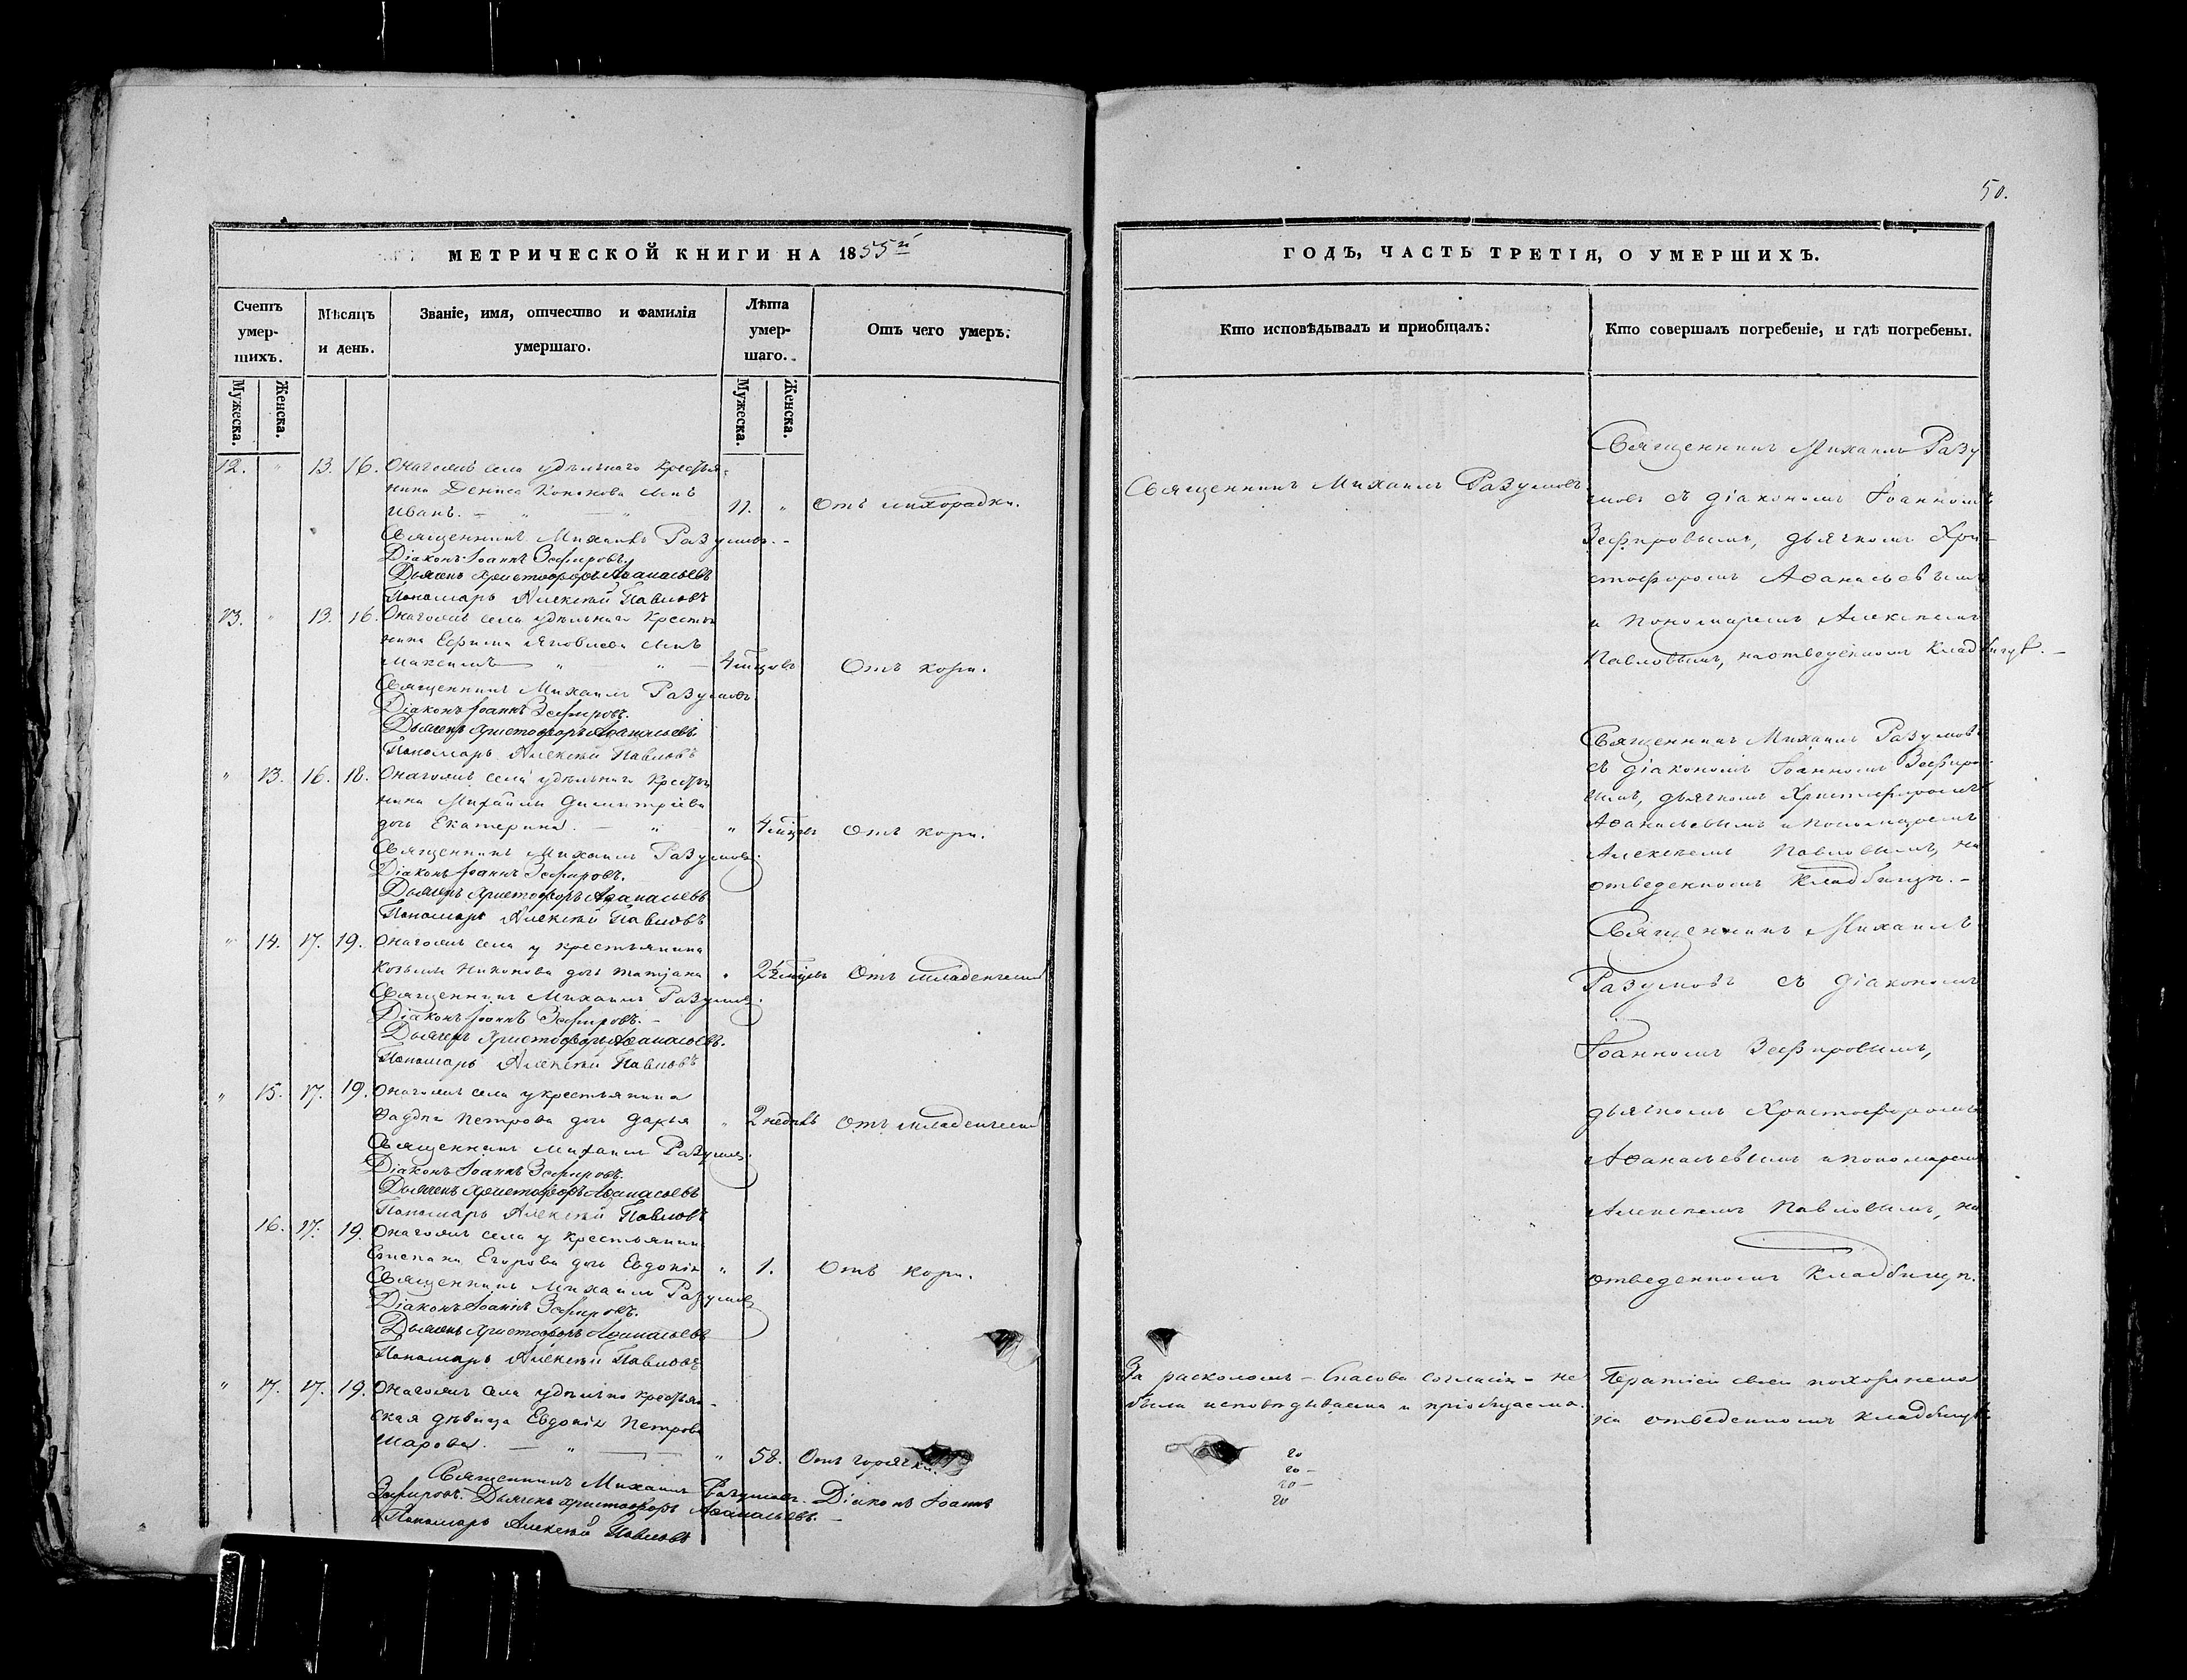 50.
МЕТРИЧЕСКОЙ КНИГИ НА 1855й
Счетъ умер-шихъ.
Мѣсяцъ и день.
Званіе, имя, отчество и фамилія умершаго.
Лѣта умер-шаго.
Отъ чего умеръ.
Мужеска.
Женска.
Мужеска.
Женска.
12. " 13. 16. Онагожъ села удѣльнаго крестья-
нина Дениса Кононова сынъ
Иванъ. — " — " 11. " Отъ лихорадки.
Священникъ Михаилъ Разумовъ. -
Діаконъ Іоаннъ Зефировъ.
Дьячекъ Христофоръ Аѳанасьевъ
Пономарь Алексѣй Павловъ
13. " 13. 16. Онагожъ села удѣльнаго крестья
нина Ефима Яковлева сынъ
Максимъ — " — " — 4 мцовъ Отъ кори.
Священникъ Михаилъ Разумовъ
Діаконъ Іоаннъ Зефировъ.
Дьячекъ Христофоръ Аѳанасьевъ
Пономарь Алексѣй Павловъ
" 13. 16. 18. Онагожъ села удѣльнаго крестья
нина Михаила Димитріева
дочь Екатерина. — " — " 4 мцовъ Отъ кори.
Священникъ Михаилъ Разумовъ.
Діаконъ Іоаннъ Зефировъ.
Дьячекъ Христофоръ Аѳанасьевъ
Пономарь Алексѣй Павловъ
" 14. 17. 19. Онагожъ села у крестьянина
Козьмы Никонова дочь Татіана " 2½ мцовъ Отъ младенческой
Священникъ Михаилъ Разумовъ.
Діаконъ Іоаннъ Зефировъ. -
Дьячекъ Христофоръ Аѳанасьевъ.
Пономарь Алексѣй Павловъ
" 15. 17. 19. Онагожъ села у крестьянина
Петрова дочь Дарья " 2 недѣль Отъ младенческой
Священникъ Михаилъ Разумовъ.
Діаконъ Іоаннъ Зефировъ.
Дьячекъ Христофоръ Аѳанасьевъ
Пономарь Алексѣй Павловъ
16. 17. 19. Онагожъ села у крестьянина
Степана Егорова дочь Евдокія " 1. Отъ кори.
Священникъ Михаилъ Разумовъ
Діаконъ Іоаннъ Зефировъ.
Дьячекъ Христофоръ Аѳанасьевъ
Пономарь Алексѣй Павловъ
" 17. 17. 19. Онагожъ села удѣльно крестьян-
ская дѣвица Евдокія Петрова
Шарова. — " — " 58. Отъ горячки.
Священникъ Михаилъ Разумовъ. Діаконъ Іоаннъ
Зефировъ. Дьячекъ Христофоръ Аѳанасьевъ. -
Пономарь Алексѣй Павловъ
ГОДЪ, ЧАСТЬ ТРЕТІЯ, О УМЕРШИХЪ.
Кто исповѣдывалъ и приобщалъ:
Кто совершалъ погребеніе, и гдѣ погребены.
Священникъ Михаилъ Разумовъ.
Священникъ Михаилъ Разу
мовъ съ діакономъ Іоанномъ
Зефировымъ, дьячкомъ Хри-
стофоромъ Аѳанасьевымъ
и Пономаремъ Алексѣемъ
Павловымъ, на отведенномъ кладбищѣ. -
Священникъ Михаилъ Разумовъ
съ діакономъ Іоанномъ Зефиро-
вымъ, дьячкомъ Христофоромъ
Аѳанасьевымъ и пономаремъ
Алексѣемъ Павловымъ, на
отведенномъ кладбищѣ. -
Священникъ Михаилъ
Разумовъ съ діакономъ
Іоанномъ Зефировымъ,
дьячкомъ Христофоромъ
Аѳанасьевымъ и пономаремъ
Алексѣемъ Павловымъ, на
отведенномъ кладбищѣ.
За расколомъ - Спасова согласія - не
была исповѣдываема и пріобщаема.
Братіею своею похоронена
на отведенномъ кладбищѣ
20
20 -
20 -
20